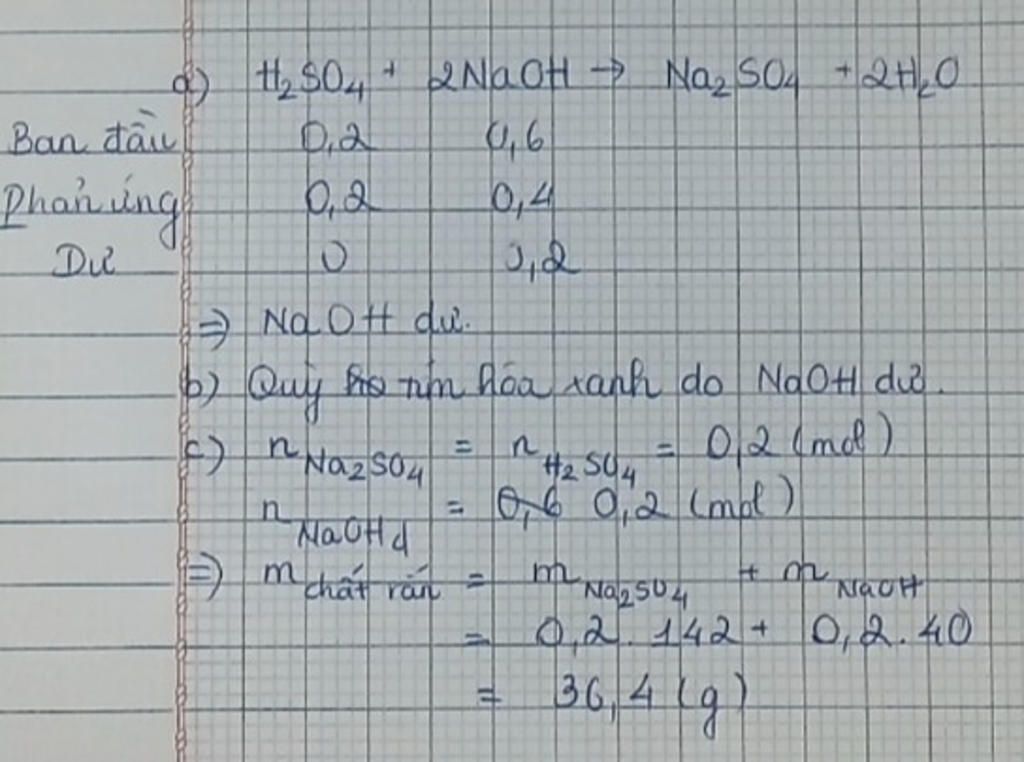 a) H₂SO₄ + 2NaOH → Na₂SO₄ + 2H₂O
Ban đầu 0,2 0,6
Phản ứng 0,2 0,4
Dư 0 0,2
=> NaOH dư.
b) Quỳ tím hóa xanh do NaOH dư.
c) n Na₂SO₄ = n H₂SO₄ = 0,2 (mol)
n NaOH d = 0,6 0,2 (mol)
=> m chất rắn = m Na₂SO₄ + m NaOH
= 0,2 . 142 + 0,2 . 40
= 36,4 (g)